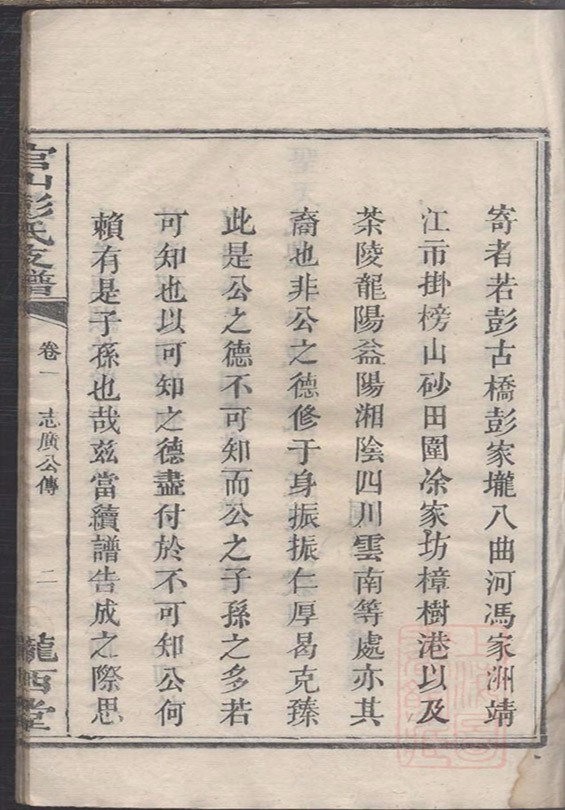 寄者若彭古橋彭家壠八曲河馮家洲靖
江市掛榜山砂田圍涂家坊樟樹港以及
茶陵龍陽益陽湘陰四川雲南等處亦其
裔也非公之德修于身振振仁厚曷克臻
此是公之德不可知而公之子孫之多若
可知也以可知之德盡付於不可知公何
賴有是子孫也哉兹當續譜告成之際思
官山彭氏支譜
卷一
志廣公傳
二
隴西堂